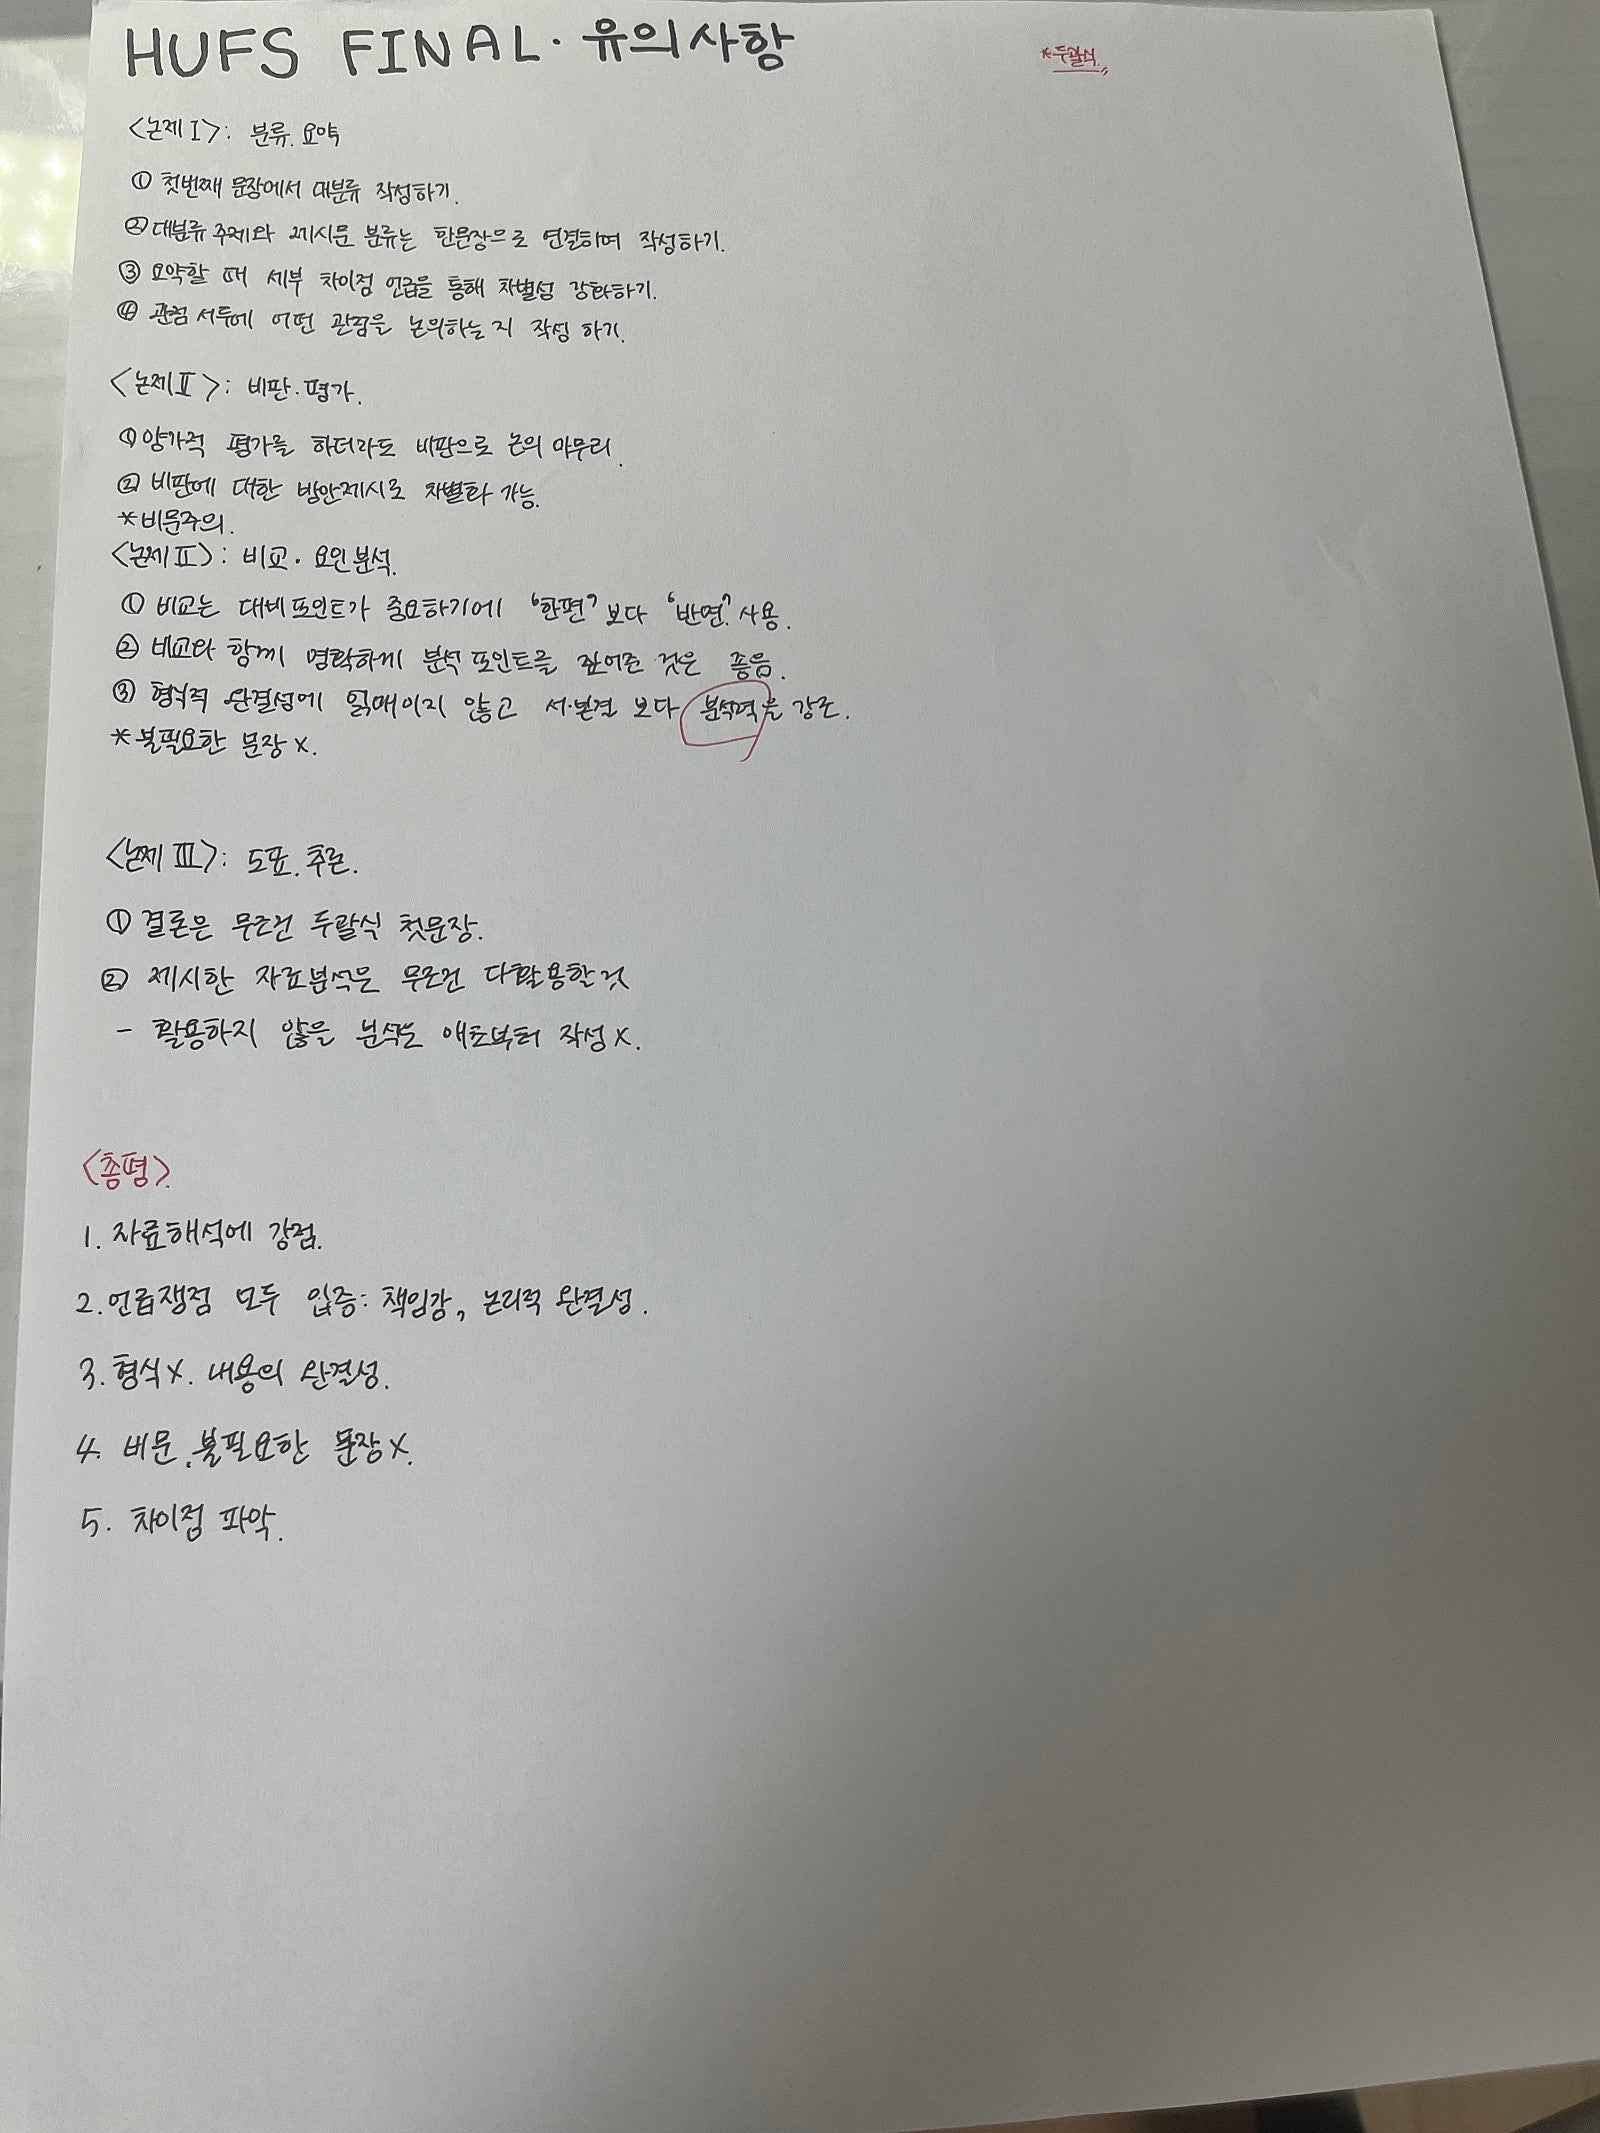 HUFS FINAL · 유의사항
*두괄식.
<논제 I>: 분류. 요약
① 첫번째 문장에서 대분류 작성하기.
② 대분류 주제와 제시문 분류는 한문장으로 연결하며 작성하기.
③ 요약할 때 세부 차이점 언급을 통해 차별성 강화하기.
④ 관점 서두에 어떤 관점을 논의하는지 작성 하기.
<논제 II>: 비판·평가.
① 양가적 평가를 하더라도 비판으로 논의 마무리.
② 비판에 대한 방안제시로 차별화 가능.
*비문주의.
<논제 II>: 비교·요인분석.
① 비교는 대비포인트가 중요하기에 '한편' 보다 '반면' 사용.
② 비교와 함께 명확하게 분석 포인트를 짚어준 것은 좋음.
③ 형식적 완결성에 얽매이지 않고 서·본·결 보다 분석력을 강조.
*불필요한 문장 X.
<논제 III>: 도표. 추론.
① 결론은 무조건 두괄식 첫문장.
② 제시한 자료분석은 무조건 다 활용할것
- 활용하지 않을 분석은 애초부터 작성 X.
<총평>.
1. 자료해석에 강점.
2. 언급쟁점 모두 입증: 책임감, 논리적 완결성.
3. 형식X. 내용의 완결성.
4. 비문, 불필요한 문장 X.
5. 차이점 파악.